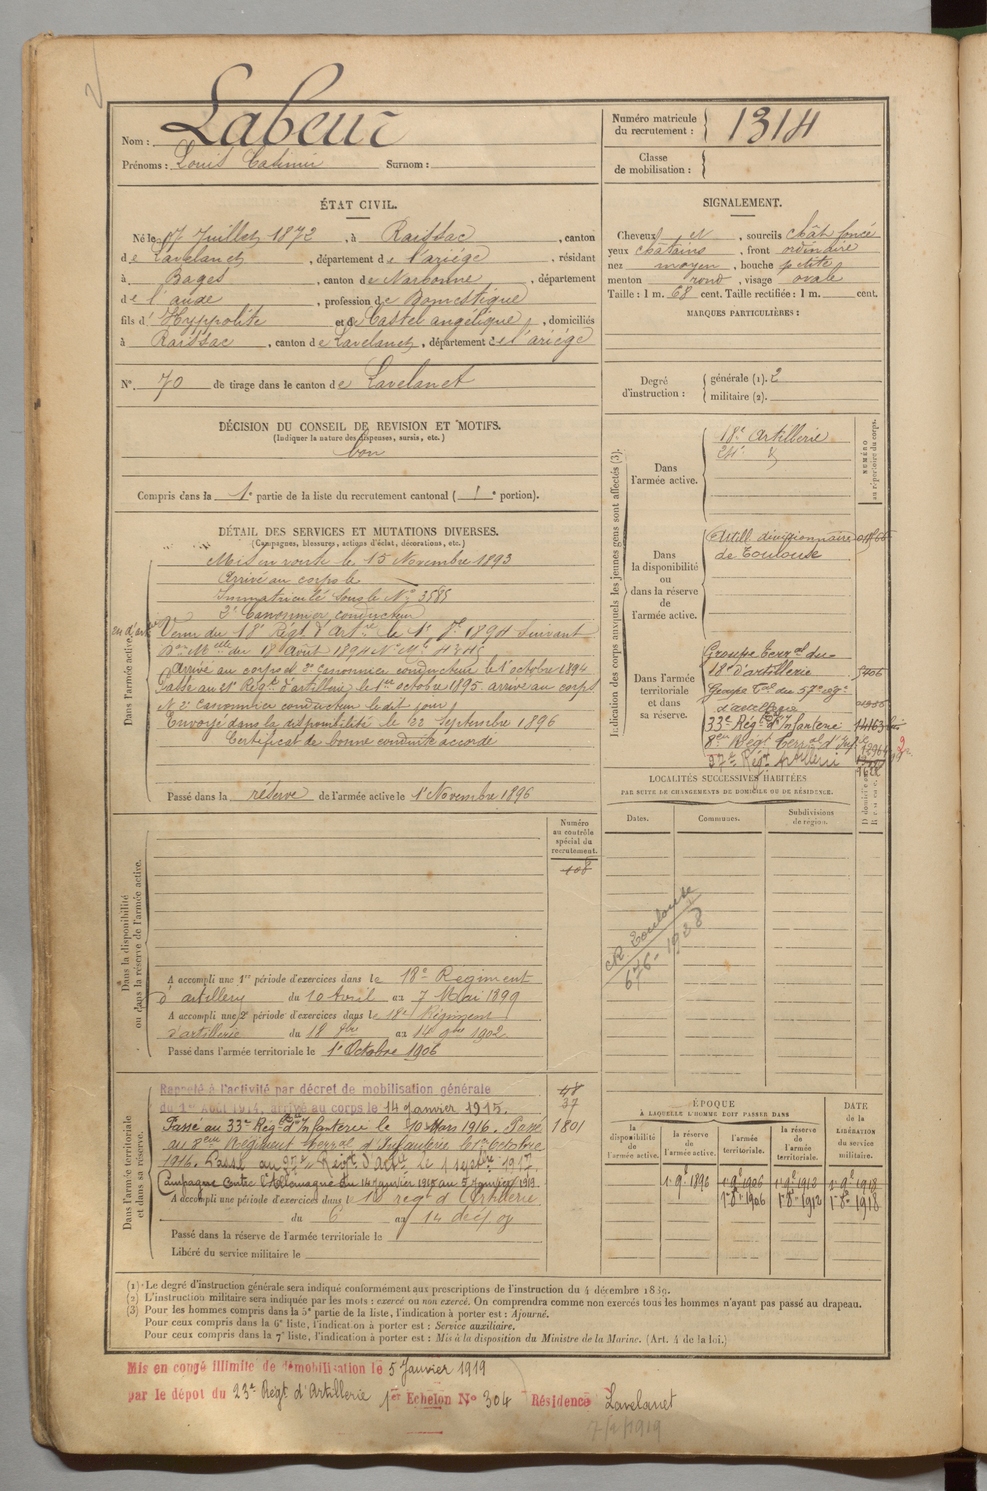 Nom : Labeur
Prénoms : Louis Casimir Surnom :
Numéro matricule du recrutement : 1314
Classe de mobilisation :
ÉTAT CIVIL.
Né le 17 Juillet 1872, à Raissac, canton
de Lavelanet, département de l'ariége, résidant
à Bages, canton de Narbonne, département
de l'aude, profession de Domestique
fils d' Hyppolite et de Castel angélique, domiciliés
à Raissac, canton de Lavelanet, département de l'ariége
N° 70 de tirage dans le canton de Lavelanet
SIGNALEMENT.
Cheveux et, sourcils chât foncé
yeux châtains, front ordinaire
nez moyen, bouche petite
menton rond, visage ovale
Taille : 1 m. 68 cent. Taille rectifiée : 1 m. cent.
MARQUES PARTICULIÈRES :
Degré d'instruction : générale (1). 2
militaire (2).
DÉCISION DU CONSEIL DE REVISION ET MOTIFS.
(Indiquer la nature des dispenses, sursis, etc.)
bon
Compris dans la 1e partie de la liste du recrutement cantonal ( 1e portion).
DÉTAIL DES SERVICES ET MUTATIONS DIVERSES.
(Campagnes, blessures, actions d'éclat, décorations, etc.)
Dans l'armée active.
Mis en route le 15 Novembre 1893
Arrivé au corps le
Immatriculé sous le N° 3585
2e Canonnier conducteur
Venu du 18e Régt d'Artie le 1er 1894 suivant
du 18 Août 1894 N° Mle
Arrivé au corps et 2e canonnier conducteur le 1er octobre 1894
Passé au 21e Régt d'artillerie le 1er octobre 1895 arrivé au corps
et 2e Canonnier conducteur le dit jour
Envoyé dans la disponibilité le 22 Septembre 1896
Certificat de bonne conduite accordé
Passé dans la réserve de l'armée active le 1er Novembre 1896
Indication des corps auxquels les jeunes gens sont affectés (3).
NUMÉRO au répertoire du corps.
Dans l'armée active.
18e Artillerie
Dans la disponibilité ou dans la réserve de l'armée active.
Artill divisionnaire
de Toulouse
Dans l'armée territoriale et dans sa réserve.
Groupe Terral du
18e d'artillerie 406
Groupe Tal du 57e régt
d'artillerie
33e Régt d'Infanterie 14163
8em Régt Terral d'Infie 12964
97e Régt Artillerie
1622
LOCALITÉS SUCCESSIVES HABITÉES
PAR SUITE DE CHANGEMENTS DE DOMICILE OU DE RÉSIDENCE.
Dates. Communes. Subdivisions de région.
CR Toulouse
676 - 1938
Dans la disponibilité ou dans la réserve de l'armée active.
Numéro au contrôle spécial du recrutement.
108
A accompli une 1re période d'exercices dans le 18e Régiment
d'artillery du 10 Avril au 7 Mai 1899
A accompli une 2e période d'exercices dans le 18e Régiment
d'artillerie du 18 8bre au 14 9bre 1902
Passé dans l'armée territoriale le 1er Octobre 1906
Dans l'armée territoriale et dans sa réserve.
Rappelé à l'activité par décret de mobilisation générale
du 1er AOUT 1914, arrivé au corps le 14 Janvier 1915.
48
37
1801
Passé au 33e Régt d'Infanterie le 10 Mars 1916. Passé
au 8eme Régiment Terral d'Infanterie le 1er Octobre
1916. Passé au 97e Régt d'Artie le 1 septbre 1917.
Campagne contre l'Allemagne du 14 janvier 1915 au 5 Janvier 1919.
A accompli une période d'exercices dans le 18 régt d'Artillerie
du 6 au 14 déc 09
Passé dans la réserve de l'armée territoriale le
Libéré du service militaire le
ÉPOQUE
À LAQUELLE L'HOMME DOIT PASSER DANS
DATE de la LIBÉRATION du service militaire.
la disponibilité de l'armée active. la réserve de l'armée active. l'armée territoriale. la réserve de l'armée territoriale.
1er 9bre 1896 1er 9bre 1906 1er 9bre 1912 1er 9bre 1918
1er 8bre 1906 1er 8bre 1912 1er 8bre 1918
(1) Le degré d'instruction générale sera indiqué conformément aux prescriptions de l'instruction du 4 décembre 1889.
(2) L'instruction militaire sera indiquée par les mots : exercé ou non exercé. On comprendra comme non exercés tous les hommes n'ayant pas passé au drapeau.
(3) Pour les hommes compris dans la 5e partie de la liste, l'indication à porter est : Ajourné.
Pour ceux compris dans la 6e liste, l'indication à porter est : Service auxiliaire.
Pour ceux compris dans la 7e liste, l'indication à porter est : Mis à la disposition du Ministre de la Marine. (Art. 4 de la loi.)
Mis en congé illimité de démobilisation le 5 Janvier 1919
par le dépot du 23e Régt d'Artillerie 1er Echelon No 304 Résidence Lavelanet